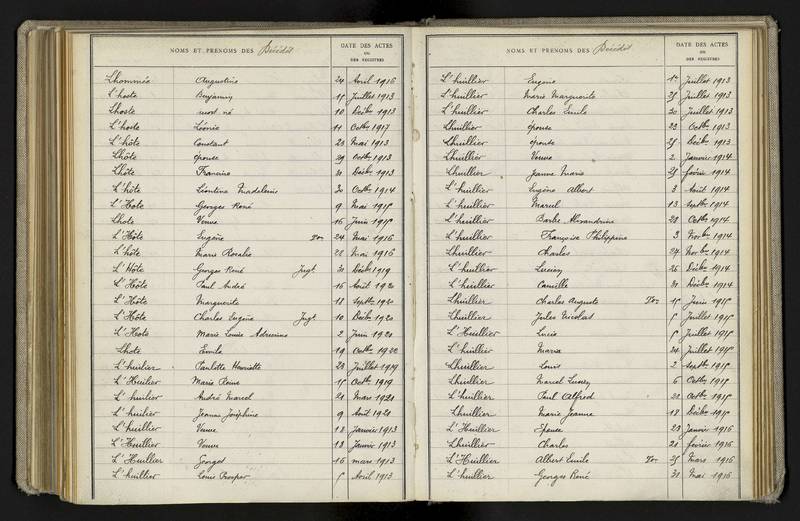 NOMS ET PRÉNOMS DES Décédés
DATE DES ACTES
OU
DES REGISTRES
Lhommée Augustine 24 Avril 1916
L'hoste Benjamin 15 Juillet 1913
Lhoste mort né 10 Décbre 1913
L'hoste Léonie 11 Octbre 1917
L'hôte Constant 23 Mai 1913
Lhôte épouse 29 Octbre 1913
Lhôte Francine 31 Décbre 1913
L'hôte Léontine Madeleine 30 Octbre 1914
L'Hôte Georges René 9 Mai 1915
Lhote Veuve 16 Juin 1915
L'Hôte Eugène Ton 24 Mai 1916
L'hôte Marie Rosalie 28 Mai 1916
L'Hôte Georges René Jugt 31 Décbre 1919
L'Hôte Paul André 16 Août 1920
L'Hôte Marguerite 18 Septbre 1920
L'Hôte Charles Eugène Jugt 10 Décbre 1920
L'Hote Marie Louise 2 Juin 1920
Lhote Emile 19 Octbre 1922
L'huilier Paulette Henriette 23 Juillet 1919
L'Huilier Marie Reine 15 Octbre 1919
L'huilier André Marcel 21 Mars 1920
L'huilier Jeanne Joséphine 9 Août 1920
L'huillier Veuve 13 Janvier 1913
L'Huillier Veuve 13 Janvier 1913
L'Huillier Georges 16 mars 1913
L'huillier Louis Prosper 5 Avril 1913
NOMS ET PRÉNOMS DES Décédés
DATE DES ACTES
OU
DES REGISTRES
L'huillier Eugène 1er Juillet 1913
L'huillier Marie Marguerite 25 Juillet 1913
L'huillier Charles Emile 30 Juillet 1913
Lhuillier épouse 23 Octbre 1913
Lhuillier épouse 25 Décbre 1913
Lhuillier Veuve 2 Janvier 1914
Lhuillier Jeanne Marie 25 février 1914
L'huillier Eugène Albert 3 Août 1914
L'huillier Marcel 13 Septbre 1914
L'huillier Barbe Alexandrine 28 Octbre 1914
L'huillier Françoise Philippine 3 Novbre 1914
Lhuillier Charles 24 Novbre 1914
L'huillier Lucien 26 Décbre 1914
L'huillier Camille 31 Décbre 1914
Lhuillier Charles Auguste Ton 15 Juin 1915
Lhuillier Jules Nicolas 5 Juillet 1915
L'Huillier Lucie 5 Juillet 1915
L'huillier Maria 24 Juillet 1915
Lhuillier Louis 2 Septbre 1915
Lhuillier Marcel Lucien 6 Octbre 1915
L'huillier Paul Alfred 22 Octbre 1915
Lhuillier Marie Jeanne 18 Décbre 1915
L'Huillier Epouse 23 Janvier 1916
Lhuillier Charles 21 février 1916
L'Huillier Albert Emile Ton 25 Mars 1916
L'huillier Georges René 31 Mai 1916